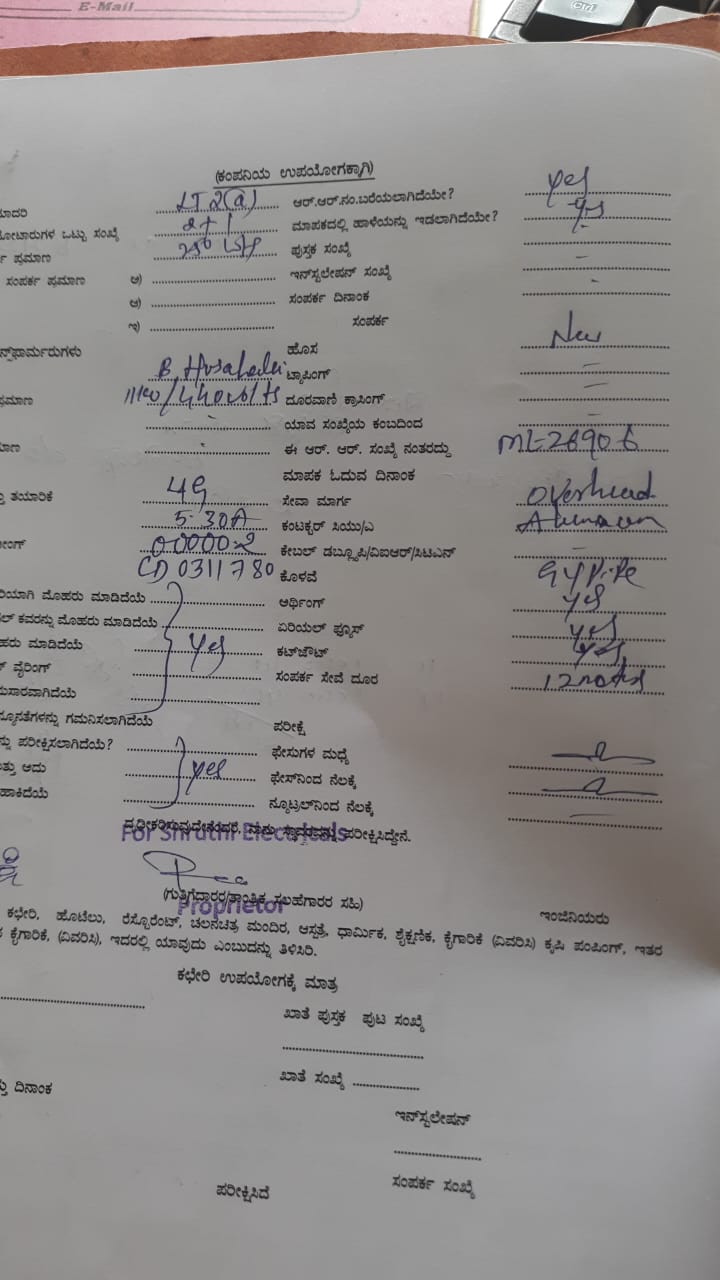 E-Mail
Ctrl
(ಕಂಪನಿಯ ಉಪಯೋಗಕ್ಕಾಗಿ)
ಮಾದರಿ LT 2(a) ಆರ್.ಆರ್.ನಂ.ಬರೆಯಲಾಗಿದೆಯೇ? yes
ಮೋಟಾರುಗಳ ಒಟ್ಟು ಸಂಖ್ಯೆ 2+1 ಮಾಪಕದಲ್ಲಿ ಹಾಳೆಯನ್ನು ಇಡಲಾಗಿದೆಯೇ? yes
ಪ್ರಮಾಣ ಪುಸ್ತಕ ಸಂಖ್ಯೆ -
ಸಂಪರ್ಕ ಪ್ರಮಾಣ ಅ) ಇನ್‌ಸ್ಟಲೇಷನ್ ಸಂಖ್ಯೆ -
ಆ) ಸಂಪರ್ಕ ದಿನಾಂಕ -
ಇ) ಸಂಪರ್ಕ
ನ್ಸ್‌ಫಾರ್ಮರುಗಳು ಹೊಸ New
B. ಟ್ಯಾಪಿಂಗ್ -
ಪ್ರಮಾಣ ದೂರವಾಣಿ ಕ್ರಾಸಿಂಗ್ -
- ಯಾವ ಸಂಖ್ಯೆಯ ಕಂಬದಿಂದ -
ಈ ಆರ್. ಆರ್. ಸಂಖ್ಯೆ ನಂತರದ್ದು ML-26906
ಮಾಪಕ ಓದುವ ದಿನಾಂಕ
ತಯಾರಿಕೆ 49 ಸೇವಾ ಮಾರ್ಗ Overhead
5-30A ಕಂಟಕ್ಟರ್ ಸಿಯು/ಎ
00000.2 ಕೇಬಲ್ ಡಬ್ಲ್ಯೂಪಿ/ವಿಐಆರ್/ಸಿಟಿಎಸ್ -
CD 0311780 ಕೊಳವೆ GI Pipe
ರಿಯಾಗಿ ಮೊಹರು ಮಾಡಿದೆಯೆ ಆರ್ಥಿಂಗ್ yes
ಕವರನ್ನು ಮೊಹರು ಮಾಡಿದೆಯೆ ಏರಿಯಲ್ ಫ್ಯೂಸ್ yes
ಹರು ಮಾಡಿದೆಯೆ yes ಕಟ್‌ಔಟ್ yes
ವೈರಿಂಗ್ ಸಂಪರ್ಕ ಸೇವೆ ದೂರ 12
ನುಸಾರವಾಗಿದೆಯೆ
ನ್ಯೂನತೆಗಳನ್ನು ಗಮನಿಸಲಾಗಿದೆಯೆ ಪರೀಕ್ಷೆ
ನ್ನು ಪರೀಕ್ಷಿಸಲಾಗಿದೆಯೆ? ಫೇಸುಗಳ ಮಧ್ಯೆ
ತ್ತು ಅದು yes ಫೇಸ್‌ನಿಂದ ನೆಲಕ್ಕೆ
ಹಾಕಿದೆಯೆ ನ್ಯೂಟ್ರಲ್‌ನಿಂದ ನೆಲಕ್ಕೆ
ದೃಢೀಕರಿಸುವುದೇನೆಂದರೆ, ನಾನು ಸ್ಥಾವರವನ್ನು ಪರೀಕ್ಷಿಸಿದ್ದೇನೆ.
For Shruthi Electricals
(ಗುತ್ತಿಗೆದಾರರ/ತಾಂತ್ರಿಕ ಸಲಹೆಗಾರರ ಸಹಿ)
Proprietor
ಇಂಜಿನಿಯರು
ಕಛೇರಿ, ಹೊಟೆಲು, ರೆಸ್ಟೊರೆಂಟ್, ಚಲನಚಿತ್ರ ಮಂದಿರ, ಆಸ್ಪತ್ರೆ, ಧಾರ್ಮಿಕ, ಶೈಕ್ಷಣಿಕ, ಕೈಗಾರಿಕೆ (ವಿವರಿಸಿ) ಕೃಷಿ ಪಂಪಿಂಗ್, ಇತರ
ಕೈಗಾರಿಕೆ, (ವಿವರಿಸಿ), ಇದರಲ್ಲಿ ಯಾವುದು ಎಂಬುದನ್ನು ತಿಳಿಸಿರಿ.
ಕಛೇರಿ ಉಪಯೋಗಕ್ಕೆ ಮಾತ್ರ
ಖಾತೆ ಪುಸ್ತಕ ಪುಟ ಸಂಖ್ಯೆ
ಖಾತೆ ಸಂಖ್ಯೆ
ದಿನಾಂಕ
ಇನ್‌ಸ್ಟಲೇಷನ್
ಸಂಪರ್ಕ ಸಂಖ್ಯೆ
ಪರೀಕ್ಷಿಸಿದೆ